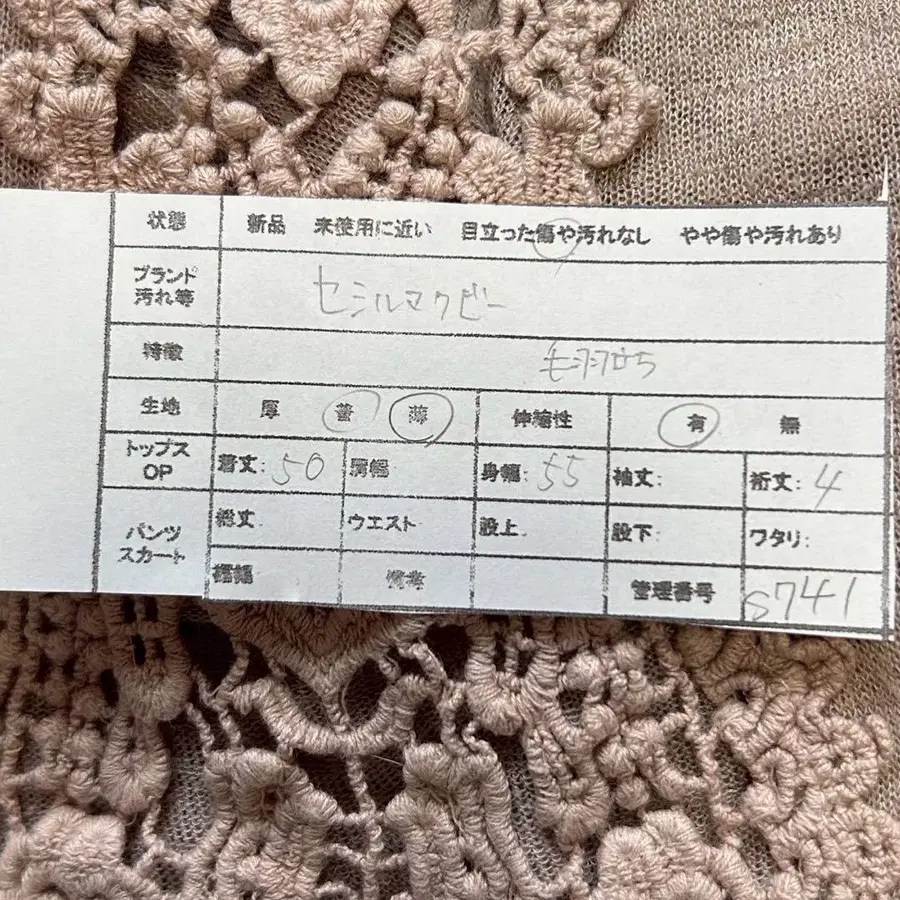 状態 新品 未使用に近い 目立った傷や汚れなし やや傷や汚れあり
ブランド
汚れ等 セシルマクビー
特徴 毛羽立ち
生地 厚 普 薄 伸縮性 有 無
トップス
OP 着丈: 50 肩幅 身幅: 55 袖丈: 裄丈: 4
パンツ
スカート 総丈 ウエスト 股上 股下: ワタリ:
裾幅 備考 管理番号 S741